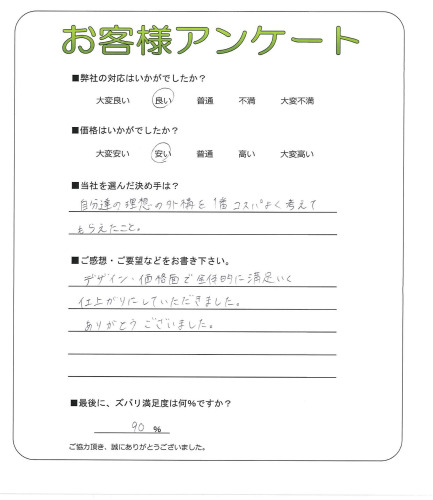 お客様アンケート
■弊社の対応はいかがでしたか?
大変良い 良い 普通 不満 大変不満
■価格はいかがでしたか?
大変安い 安い 普通 高い 大変高い
■当社を選んだ決め手は?
自分達の理想の外構を1番コスパよく考えて
もらえたこと。
■ご感想・ご要望などをお書き下さい。
デザイン・価格面で全体的に満足いく
仕上がりにしていただきました。
ありがとうございました。
■最後に、ズバリ満足度は何%ですか?
90 %
ご協力頂き、誠にありがとうございました。